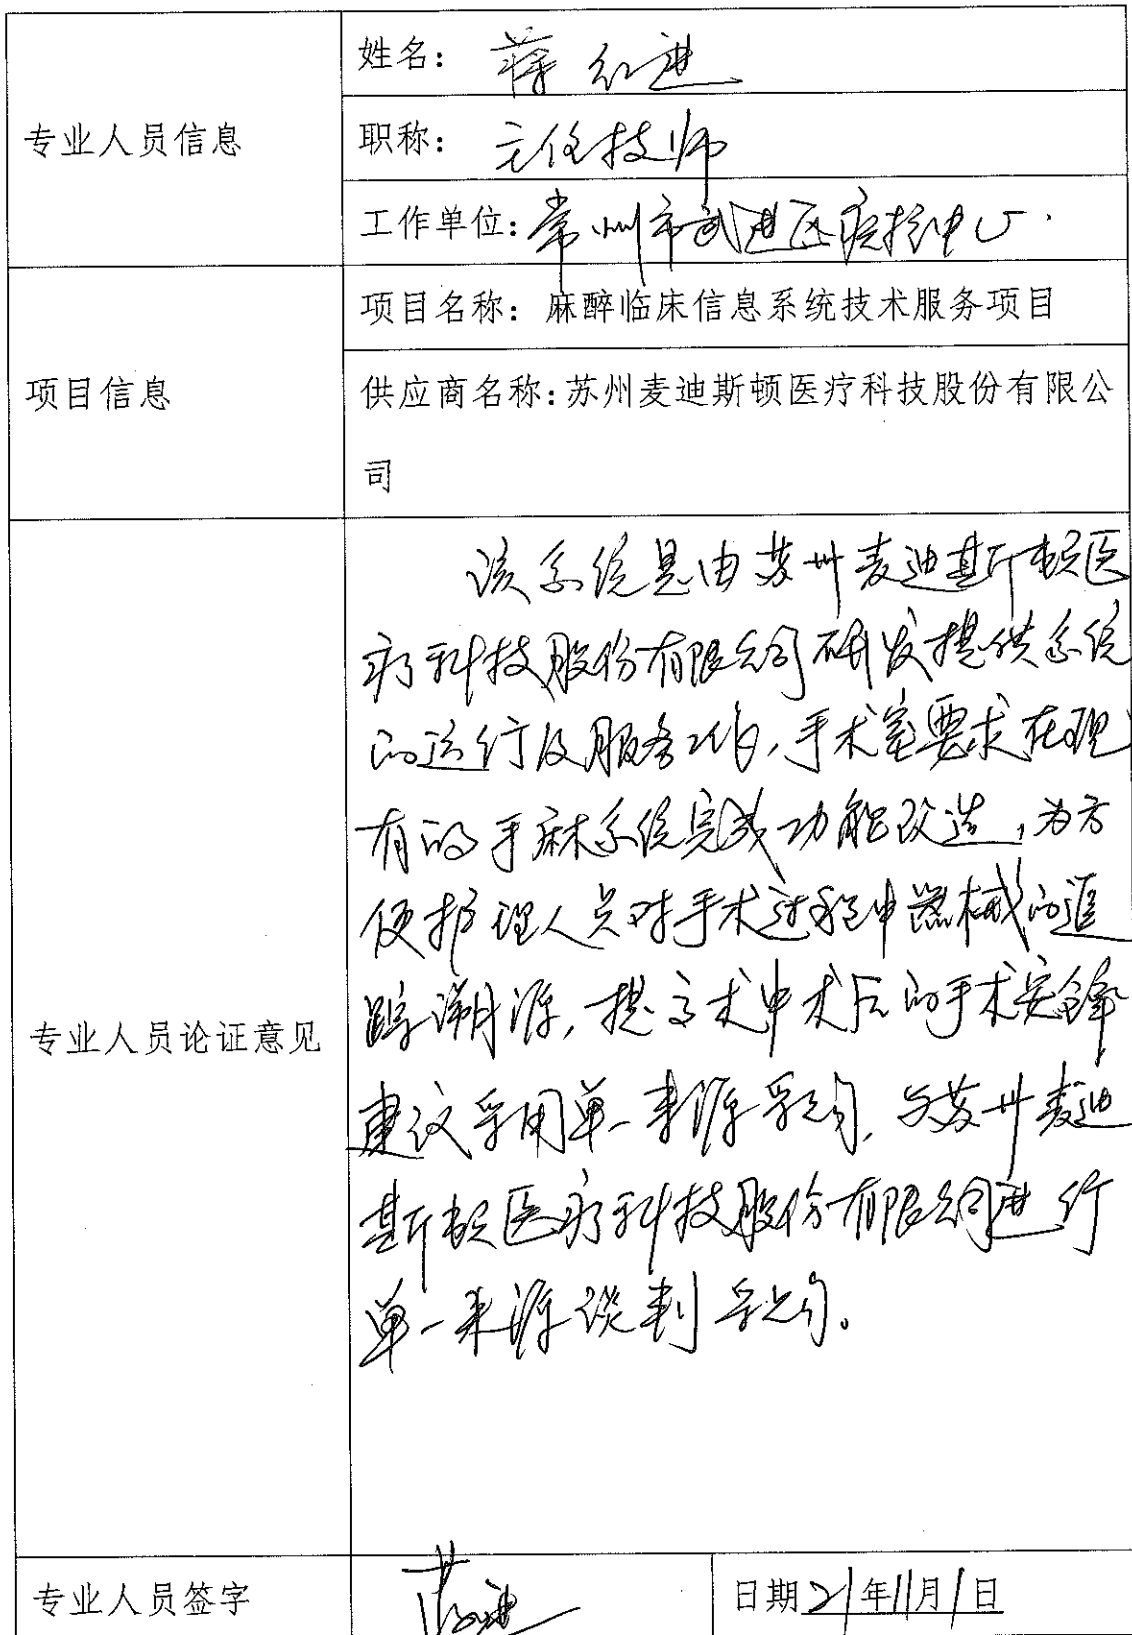 专业人员信息
姓名：蒋红进
职称：主任技师
工作单位：常州市武进区疾控中心
项目信息
项目名称：麻醉临床信息系统技术服务项目
供应商名称：苏州麦迪斯顿医疗科技股份有限公
司
专业人员论证意见
该系统是由苏州麦迪斯顿医
疗科技股份有限公司研发提供系统
的运行及服务工作，手术室要求在现
有的手麻系统完成功能改造，为方
便护理人员对手术过程中器械的追
踪溯源，提高术中术后的手术安全
建议采用单一来源采购，与苏州麦迪
斯顿医疗科技股份有限公司进行
单一来源谈判采购。
专业人员签字
日期21年11月1日